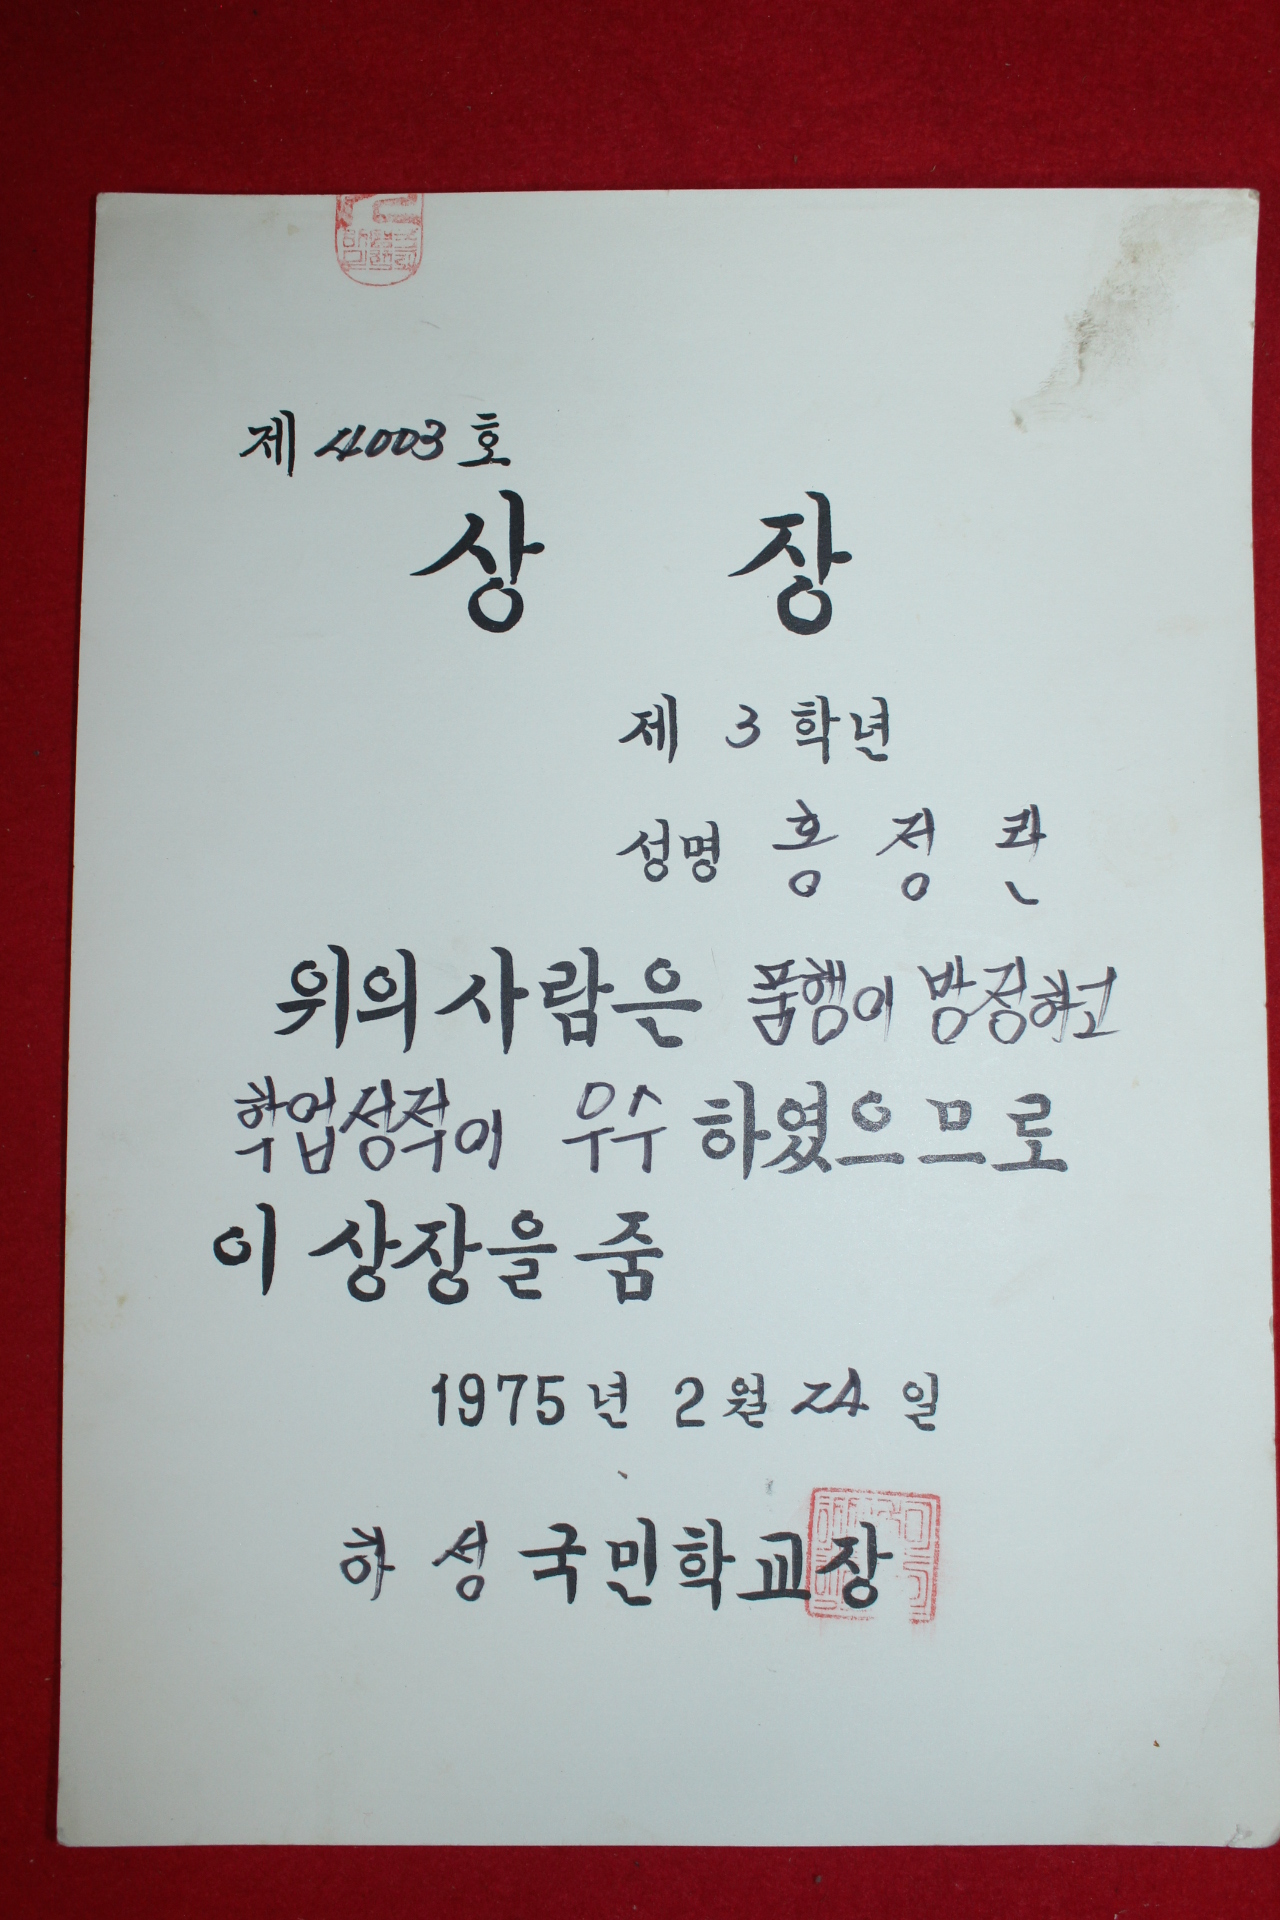 제 4003 호
상 장
제 3 학년
성명 홍 정 관
위의 사람은 품행이 방정하고
학업성적이 우수 하였으므로
이 상장을 줌
1975 년 2 월 24 일
하 성 국민학교장